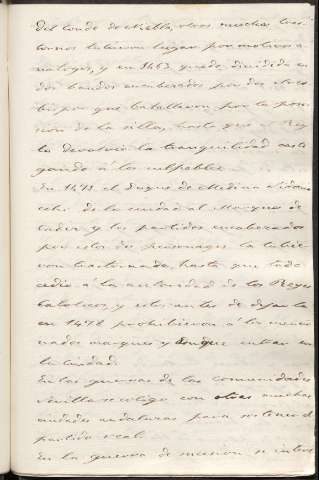 del Conde de Niebla, otros muchos tras-
tornos tuvieron lugar por motivos a-
nalogos, y en 1463 quedo dividida en
dos bandos encabezados por dos Arzo-
bispos que batallaron por la pose-
sion de la silla, hasta que el Rey
la devolvio la tranquilidad casti
gando á los culpables.
En 1473 el Duque de Medina Sidonia
echó de la ciudad al Marques de
Cadiz y los partidos encabezados
por estos dos personages la tubie-
ron trastornada, hasta que todo
cedio á la autoridad de los Reyes
Catolicos, y estos antes de dejarla
en 1478 prohibieron á los mencio
nados marques y Duque entrar en
la ciudad.
En las guerras de las comunidades
Sevilla se coligo con otras muchas
ciudades andaluzas para sostener el
partido real.
En la guerra de sucesion se intro